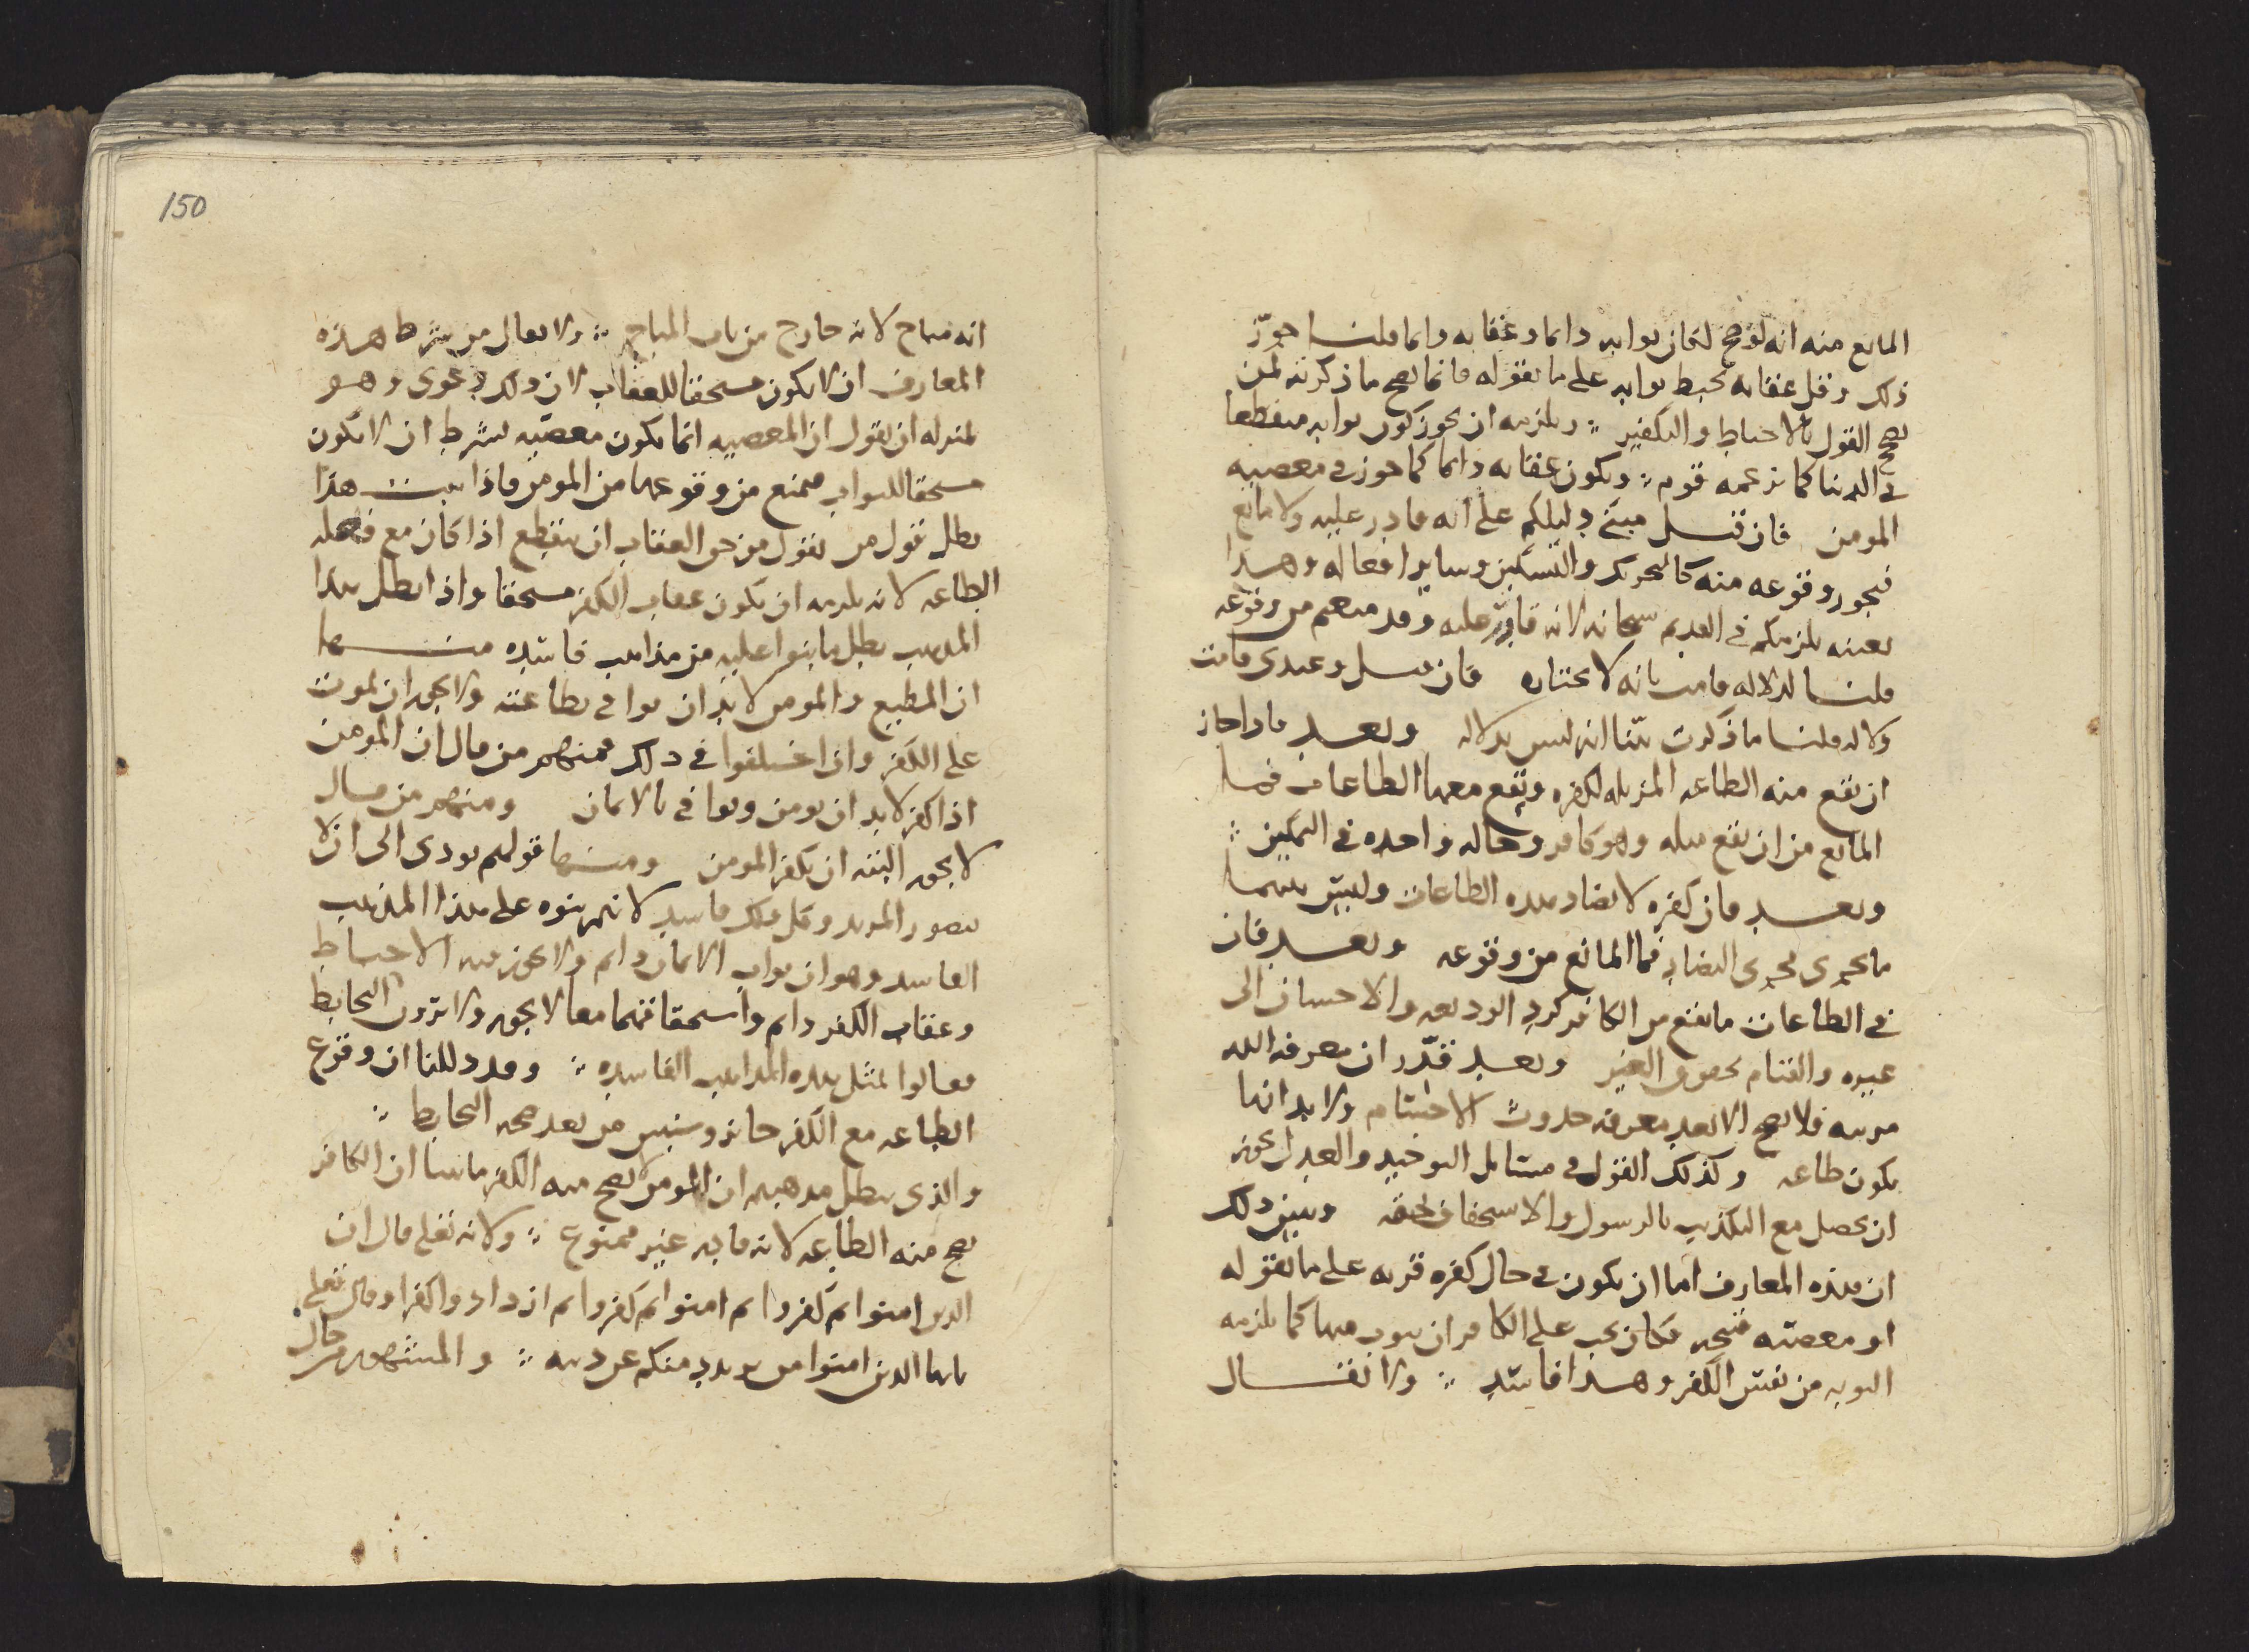 المانع منه انه لو صح لكان ثوابه دايما وعقابه دايما قلنا جوّز
ذلك وقل عقابه يحبط ثوابه على ما يقوله فانما يصح ما ذكرته لمن
يصح القول بالاحباط والتكفير ؞ ويلزمه ان يجوز كون ثوابه منقطعا
في الدنيا كما زعمه قوم ؞ ويكون عقابه دايما كما جوز في معصيه
المومن فان قيل مبنى دليلكم على انه قادر عليه ولا مانع
فيجوز وقوعه منه كالتحريك والتسكين وساير افعاله وهذا
بعينه يلزمكم في القديم سبحانه لانه قادر عليه وقد منعتم من وقوعه
قلنا لدلاله قامت بانه لا يختاره فان قيل وعندي قامت
دلاله قلنا ما ذكرت بيّنا انه ليس بدلاله وبعد فاذا جاز
ان تقع منه الطاعه المزيله لكفره وتقع معها الطاعات فما
المانع من ان تقع قبله وهو كافر وحاله واحده في التمكين ؞
وبعد فان كفره لا يضاد هذه الطاعات وليس بينهما
ما يجري مجرى التضاد فما المانع من وقوعه وبعد فان
في الطاعات ما يقع من الكافر كرد الوديعه والاحسان الى
عبيده والقيام بحقوق الغير وبعد قدّر ان معرفه الله
مرتبه فلا تصح الا بعد معرفه حدوث الاجسام ولا بد انها
تكون طاعه وكذلك القول في مسايل التوحيد والعدل يجوز
ان يحصل مع التكذيب بالرسول والاستخفاف بحقه ويبين ذلك
ان هذه المعارف اما ان تكون في حال كفره قربه على ما نقوله
او معصيه قبيحه فكان يجب على الكافر ان يتوب منها كما يلزمه
التوبه من نفس الكفر وهذا فاسد ؞ ولا يقال
150
انه مباح لانه خارج من باب المباح ؞ ولا يقال من شرط هذه
المعارف ان لا يكون مستحقا للعقاب لان ذلك دعوى وهو
بمنزله ان يقول ان المعصيه انما تكون معصيه بشرط ان لا يكون
مستحقا للثواب فيمنع من وقوعها من المومن فاذا ثبت هذا
بطل قول من يقول من حق العقاب ان ينقطع اذا كان مع فاعله
الطاعه لانه يلزمه ان يكون عقاب الكفر مستحقا واذا بطل هذا
المذهب بطل ما بنوا عليه من مذاهب فاسده منها
ان المطيع والمومن لا بد ان يوافي بطاعته ولا يجوز ان يموت
على الكفر وان اختلفوا في ذلك فمنهم من قال ان المومن
اذا كفر لا بد ان يومن ويوافي بالايمان ومنهم من قال
لا يجوز البته ان يكفر المومن ومنها قولهم يودي الى ان لا
يتصور المرتد وكل ذلك فاسد لانهم بنوه على هذا المذهب
الفاسد وهو ان ثواب الايمان دايم ولا يجوز فيه الاحباط
وعقاب الكفر دايم واستحقاقهما معا لا يجوز ولا يرون التحابط
فقالوا بمثل هذه المذاهب الفاسده ؞ وقد دللنا ان وقوع
الطاعه مع الكفر جايز وسنبين من بعد صحه التحابط ؞
والذي يبطل مذهبهم ان المومن لا يصح منه الكفر ما بينا ان الكافر
يصح منه الطاعه لانه قادر غير ممنوع ؞ ولانه تعلى قال ان
الذين امنوا ثم كفروا ثم امنوا ثم كفروا ثم ازدادوا كفرا وقال تعلى
يايها الذين امنوا من يرتدد منكم عن دينه ؞ والمشهور من حال